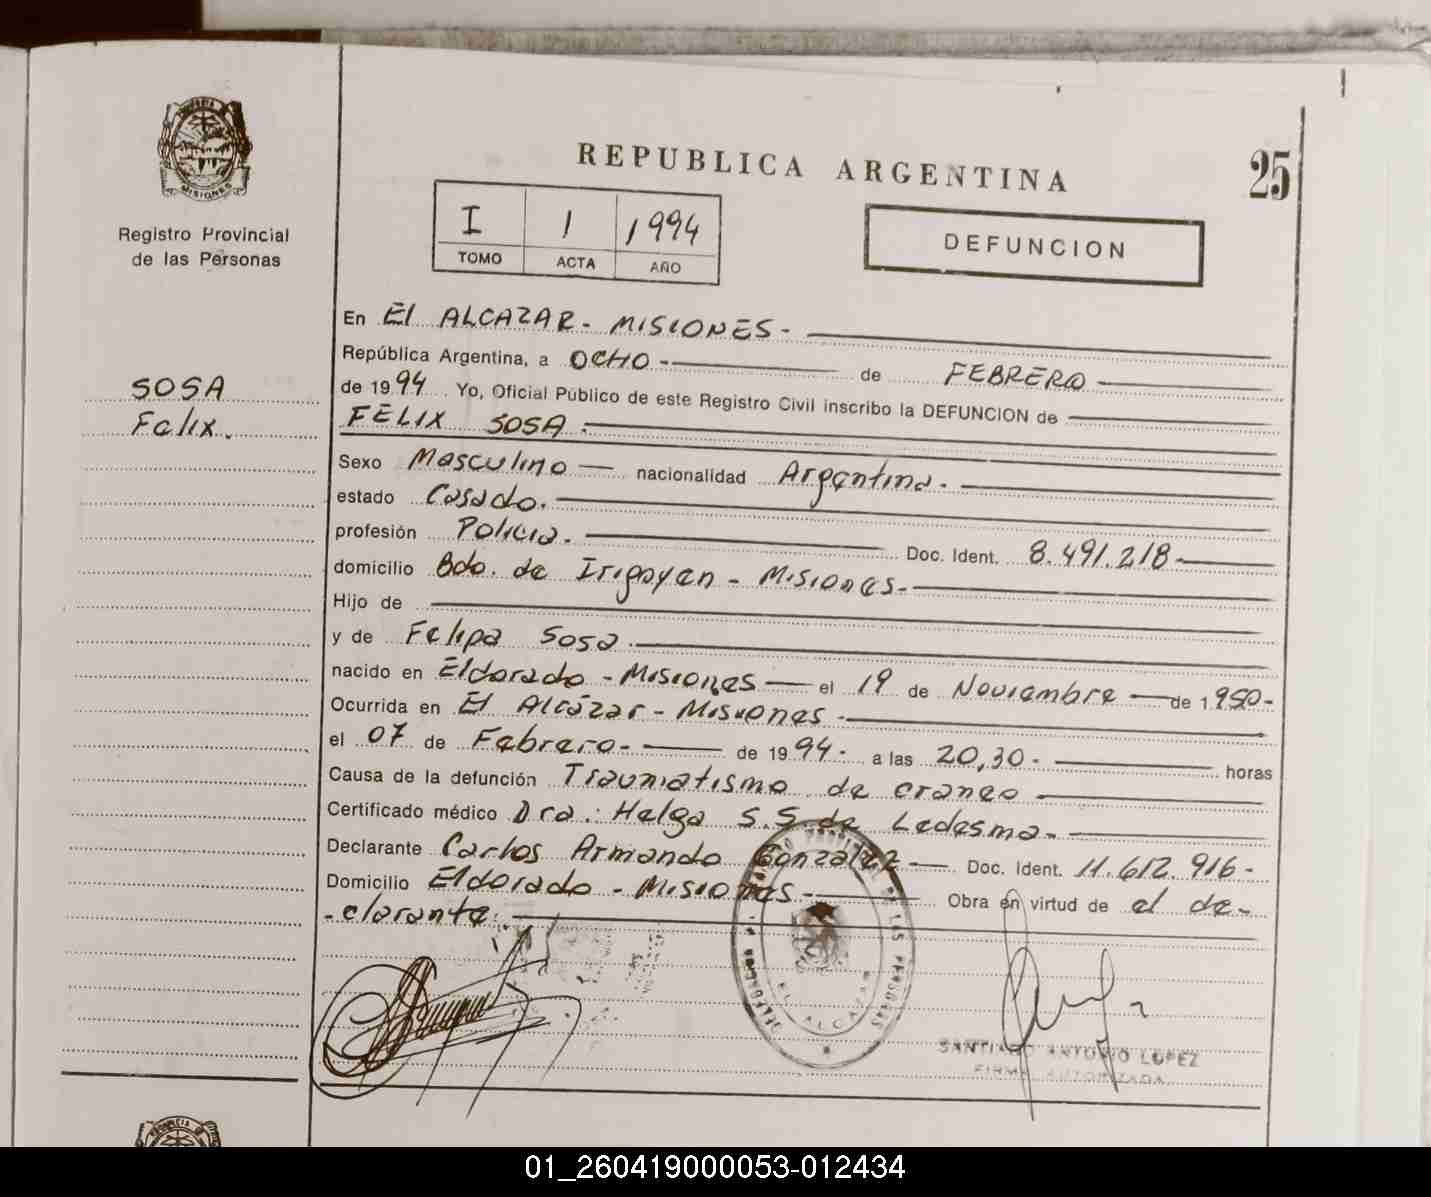 REPUBLICA ARGENTINA
25
MISIONES
Registro Provincial
de las Personas
I 1 1994
TOMO ACTA AÑO
DEFUNCION
SOSA
Felix.
En El ALCAZAR - MISIONES -
República Argentina, a OCHO - de FEBRERO
de 1994. Yo, Oficial Público de este Registro Civil inscribo la DEFUNCION de
FELIX SOSA.
Sexo Masculino nacionalidad Argentina.
estado Casado.
profesión Policia. Doc. Ident. 8.491.218
domicilio Bdo. de Irigoyen - Misiones -
Hijo de
y de Felipa Sosa.
nacido en Eldorado - Misiones el 19 de Noviembre de 1950-
Ocurrida en El Alcázar - Misiones -
el 07 de Febrero - de 1994 - a las 20,30 - horas
Causa de la defunción Traumatismo de craneo
Certificado médico Dra.: Helga S.S de Ledesma -
Declarante Carlos Armando Gonzalez Doc. Ident. 11.612.916 -
Domicilio Eldorado - Misiones - Obra en virtud de el de-
-clarante.
EL ALCAZAR
SANTIAGO ANTONIO LOPEZ
FIRMA AUTORIZADA
01_260419000053-012434